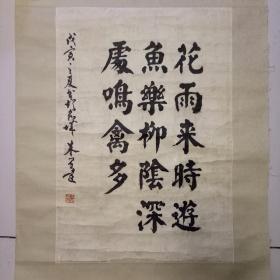 花雨来時遊
魚樂柳陰深
處鳴禽多
戊寅之夏